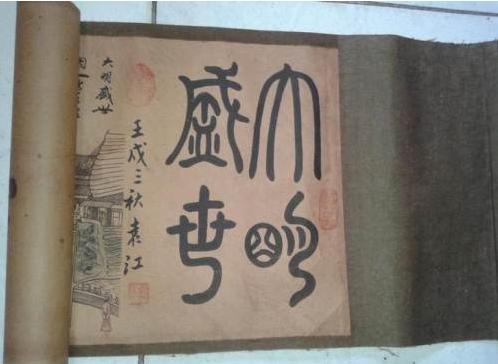 大明
盛世
壬戌三秋袁江
大明盛世